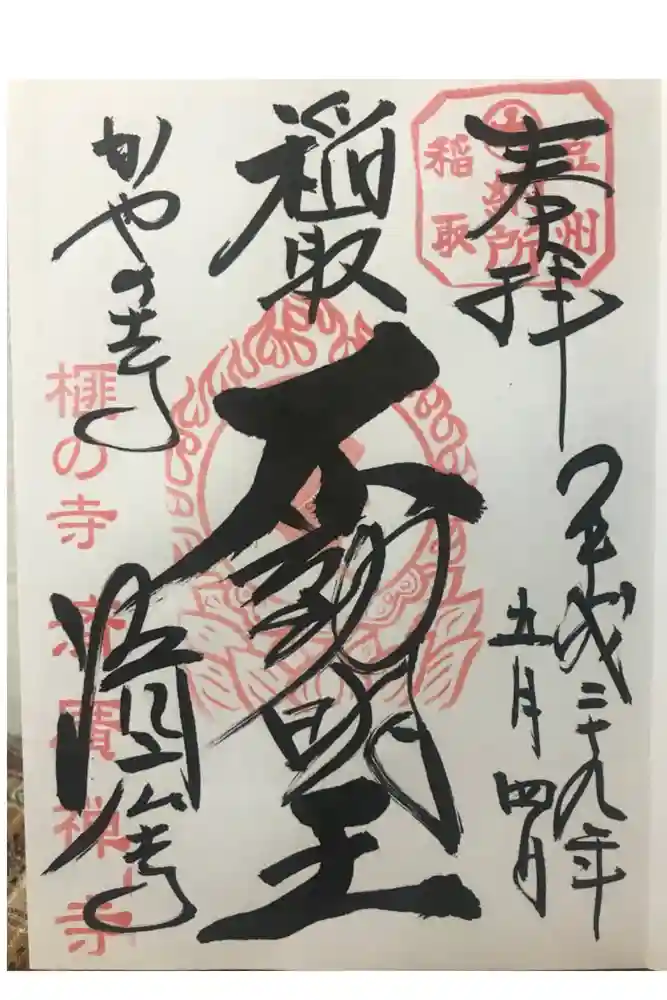 奉拝
平成二十九年
五月四日
稲取
不動明王
かやの寺
済廣寺
豆州
納所
稲取
榧の寺 済廣禅寺